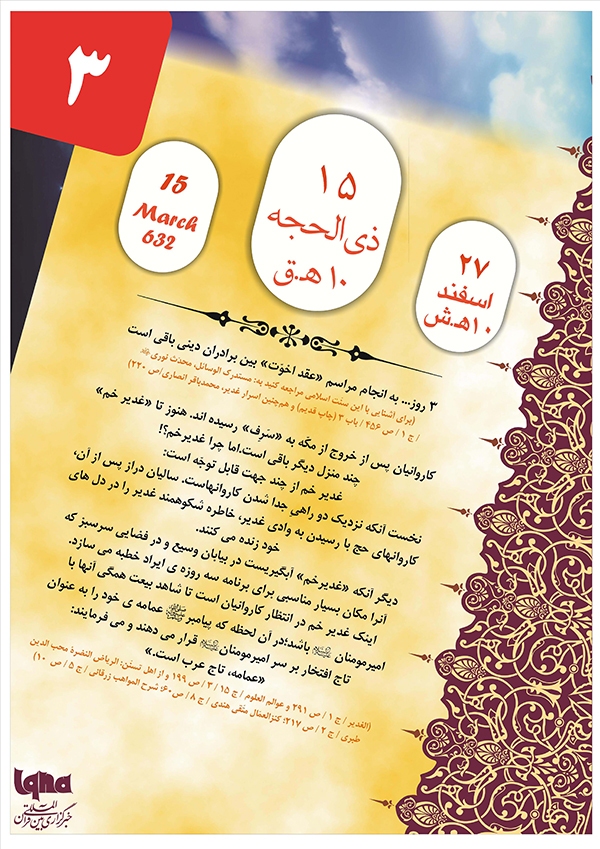 ۳
۱۵
ذی‌الحجه
۱۰ ه‍.ق
15
March
632
۲۷
اسفند
۱۰ه‍.ش
۳ روز... به انجام مراسم «عقد اخوّت» بین برادران دینی باقی است
(برای آشنایی با این سنت اسلامی مراجعه کنید به: مستدرک الوسائل، محدث نوری
/ ج ۱ / ص ۴۵۶ / باب ۳ (چاپ قدیم) و هم‌چنین اسرار غدیر، محمدباقر انصاری/ص ۲۲۰)
کاروانیان پس از خروج از مکّه به «سَرِف» رسیده اند. هنوز تا «غدیر خم»
چند منزل دیگر باقی است.اما چرا غدیرخم؟!
غدیر خم از چند جهت قابل توجّه است:
نخست آنکه نزدیک دو راهی جدا شدن کاروانهاست. سالیان دراز پس از آن،
کاروانهای حج با رسیدن به وادی غدیر، خاطره شکوهمند غدیر را در دل های
خود زنده می کنند.
دیگر آنکه «غدیرخم» آبگیریست در بیابان وسیع و در فضایی سرسبز که
آنرا مکان بسیار مناسبی برای برنامه سه روزه ی ایراد خطبه می سازد.
اینک غدیر خم در انتظار کاروانیان است تا شاهد بیعت همگی آنها با
امیرمومنان باشد؛در آن لحظه که پیامبر عمامه ی خود را به عنوان
تاج افتخار بر سر امیرمومنان قرار می دهند و می فرمایند:
«عمامه، تاج عرب است.»
(الغدیر / ج ۱ / ص ۲۹۱ و عوالم العلوم / ج ۱۵ / ۳ / ص ۱۹۹ و از اهل تسنن: الریاض النضرة محب الدین
طبری / ج ۲ / ص ۲۱۷؛ کنزالعمال متقی هندی / ج ۸ / ص ۶۰؛ شرح المواهب زرقانی / ج ۵ / ص ۱۰)
Iqna
خبرگزاری بین المللی قرآن